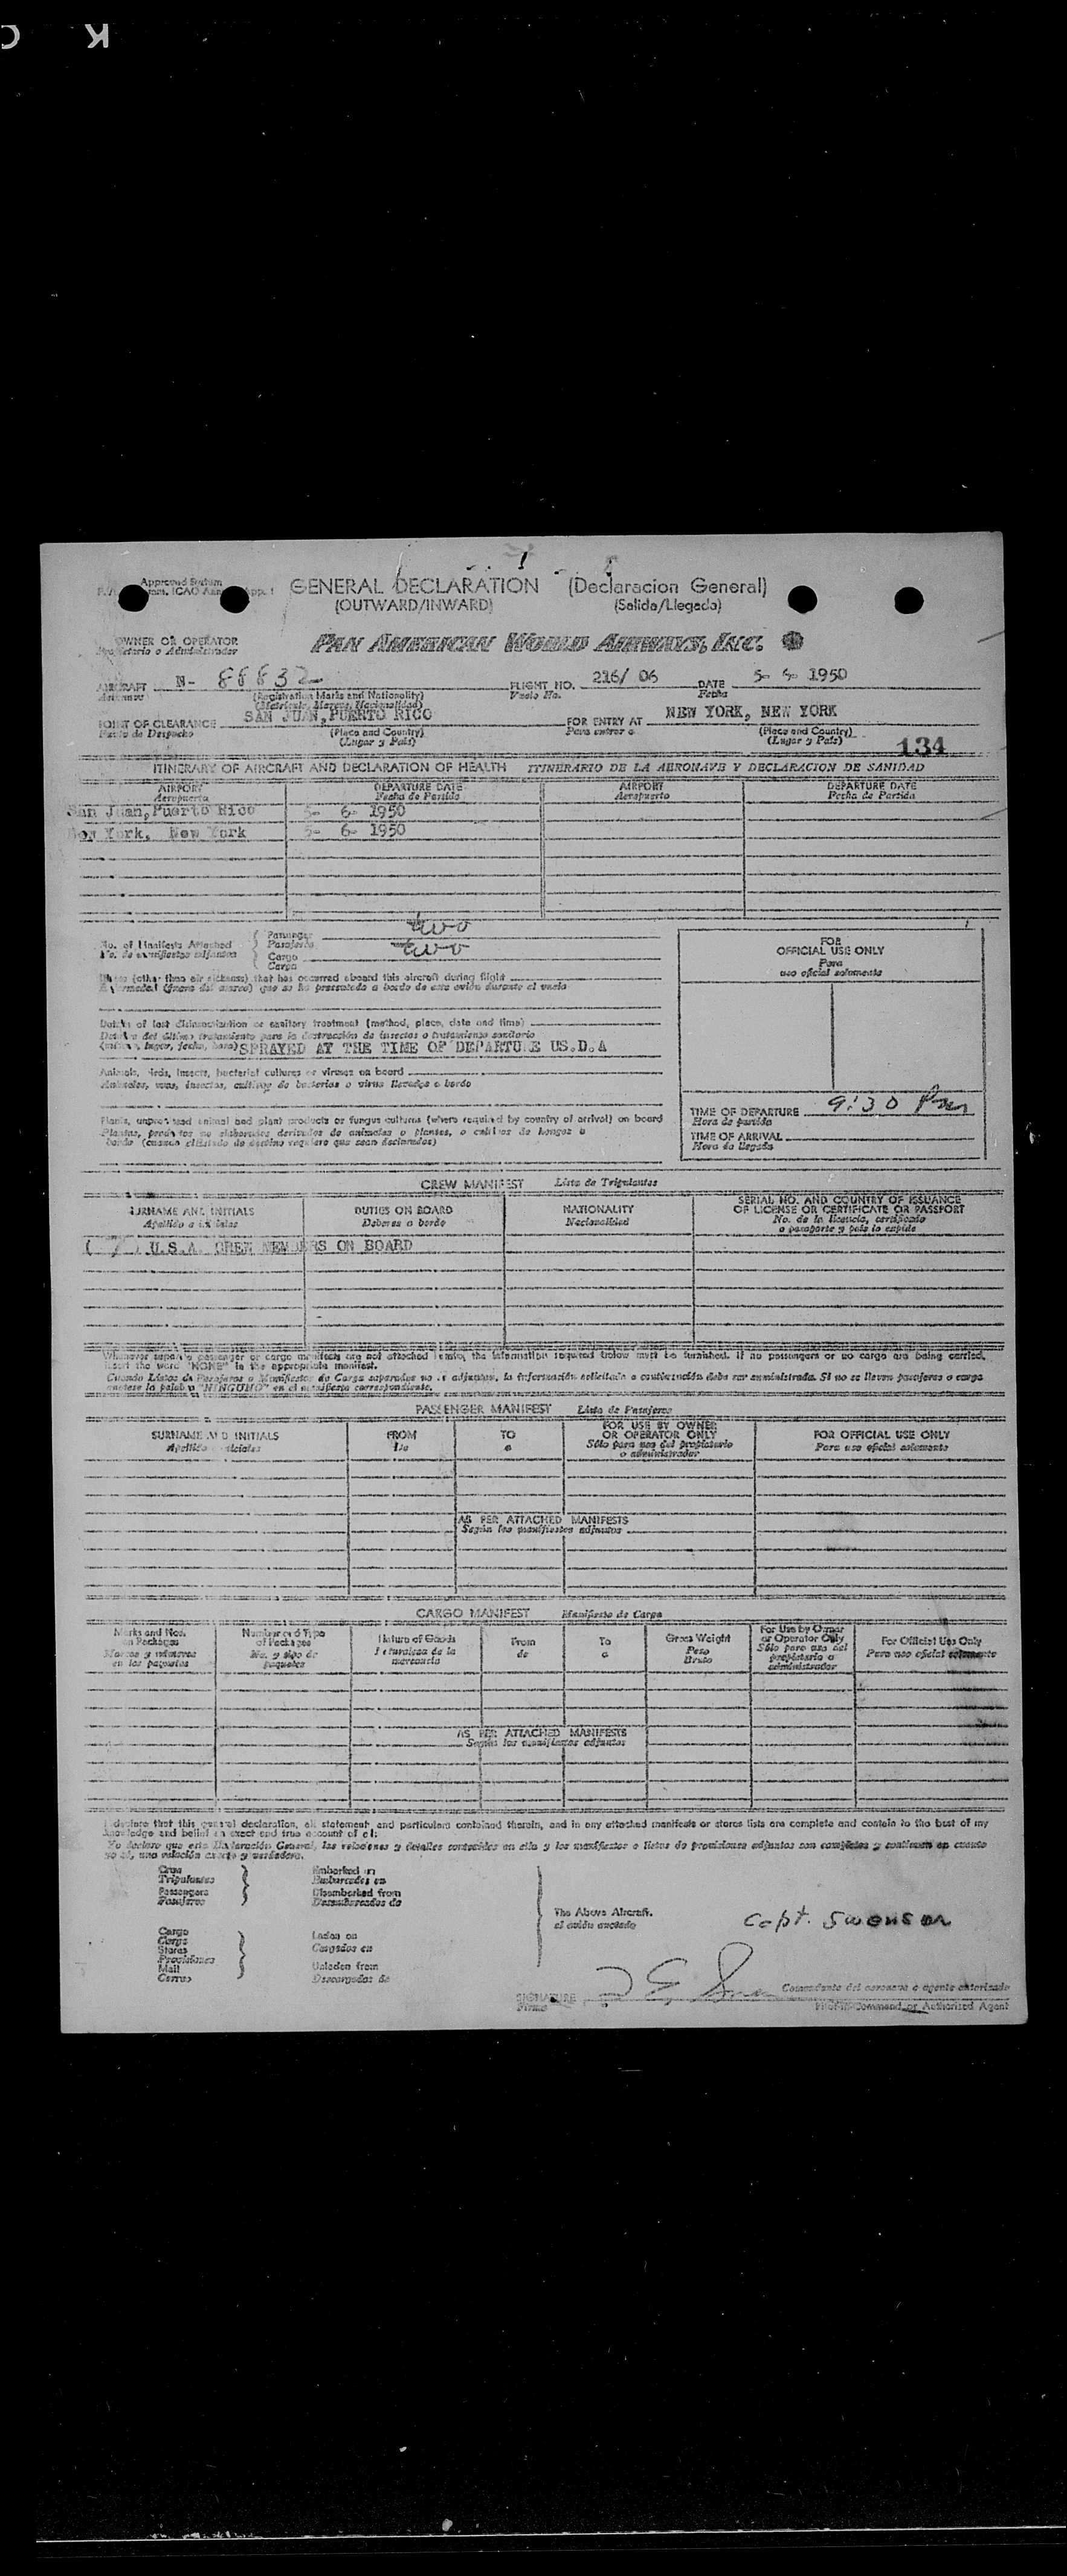 GENERAL DECLARATION (Declaracion General)
(OUTWARD/INWARD) (Salida/Llegada)
Approved System
OWNER OR OPERATOR
Propietario o Administrador
PAN AMERICAN WORLD AIRWAYS, INC.
AIRCRAFT N- 88832 FLIGHT NO. 216/ 06 DATE 5- 6- 1950
Aeronave (Registration Marks and Nationality) Vuelo No. Fecha
(Matricula, Marcas, Nacionalidad)
POINT OF CLEARANCE SAN JUAN, PUERTO RICO FOR ENTRY AT NEW YORK, NEW YORK
Punto de Despacho (Place and Country) Para entrar a (Place and Country)
(Lugar y País) (Lugar y País) 134
ITINERARY OF AIRCRAFT AND DECLARATION OF HEALTH ITINERARIO DE LA AERONAVE Y DECLARACION DE SANIDAD
AIRPORT DEPARTURE DATE AIRPORT DEPARTURE DATE
Aeropuerto Fecha de Partida Aeropuerto Fecha de Partida
San Juan, Puerto Rico 5- 6- 1950
New York, New York 5- 6- 1950
No. of Manifests Attached
No. de manifiestos adjuntos
Passenger two
Pasajeros
Cargo two
Carga
Illness (other than air sickness) that has occurred aboard this aircraft during flight
Details of last disinsectization or sanitary treatment (method, place, date and time)
Detalles del último tratamiento para la destrucción de insectos o tratamiento sanitario
SPRAYED AT THE TIME OF DEPARTURE US.D.A
Animals, birds, insects, bacterial cultures or viruses on board
Animales, aves, insectos, cultivos de bacterias o virus llevados a bordo
Plants, unprocessed animal and plant products or fungus cultures (where required by country of arrival) on board
FOR
OFFICIAL USE ONLY
Para
uso oficial solamente
TIME OF DEPARTURE 9:30 Pm
Hora de partida
TIME OF ARRIVAL
Hora de llegada
CREW MANIFEST Lista de Tripulantes
SURNAME AND INITIALS DUTIES ON BOARD NATIONALITY SERIAL NO. AND COUNTRY OF ISSUANCE
Apellido e iniciales Deberes a bordo Nacionalidad OF LICENSE OR CERTIFICATE OR PASSPORT
No. de la licencia, certificado
o pasaporte y país lo expide
( 7 ) U.S.A. CREW MEMBERS ON BOARD
Whenever separate passenger or cargo manifests are not attached hereto, the information required below must be furnished. If no passengers or no cargo are being carried,
insert the word "NONE" in the appropriate manifest.
Cuando Listas de Pasajeros o Manifiestos de Carga separados no se adjuntan, la información solicitada a continuación debe ser suministrada. Si no se llevan pasajeros o carga
anótese la palabra "NINGUNO" en el manifiesto correspondiente.
PASSENGER MANIFEST Lista de Pasajeros
SURNAME AND INITIALS FROM TO FOR USE BY OWNER FOR OFFICIAL USE ONLY
Apellido iniciales De a OR OPERATOR ONLY Para uso oficial solamente
Sólo para uso del propietario
o administrador
AS PER ATTACHED MANIFESTS
Según los manifiestos adjuntos
CARGO MANIFEST Manifiesto de Carga
Marks and Nos. Number and Type Nature of Goods From To Gross Weight For Use by Owner For Official Use Only
on Packages of Packages Naturaleza de la de a Peso or Operator Only Para uso oficial solamente
Marcas y números No. y tipo de mercancía Bruto Sólo para uso del
en los paquetes paquetes propietario o
administrador
AS PER ATTACHED MANIFESTS
Según los manifiestos adjuntos
I declare that this general declaration, all statement and particulars contained therein, and in any attached manifests or stores lists are complete and contain to the best of my
knowledge and belief an exact and true account of all:
Yo declaro que esta Declaración General, las relaciones y detalles contenidos en ella y los manifiestos o listas de provisiones adjuntos son completos y contienen en cuanto
yo sé, una relación exacta y verdadera.
Crew Embarked on
Tripulantes Embarcados en
Passengers Disembarked from
Pasajeros Desembarcados de
The Above Aircraft.
el avión anotado
Capt. Swenson
Cargo Laden on
Carga Cargados en
Stores
Provisiones
Mail Unladen from
Correo Descargados de
SIGNATURE Comandante del aeronave o agente autorizado
Firma Pilot-in-Command or Authorized Agent